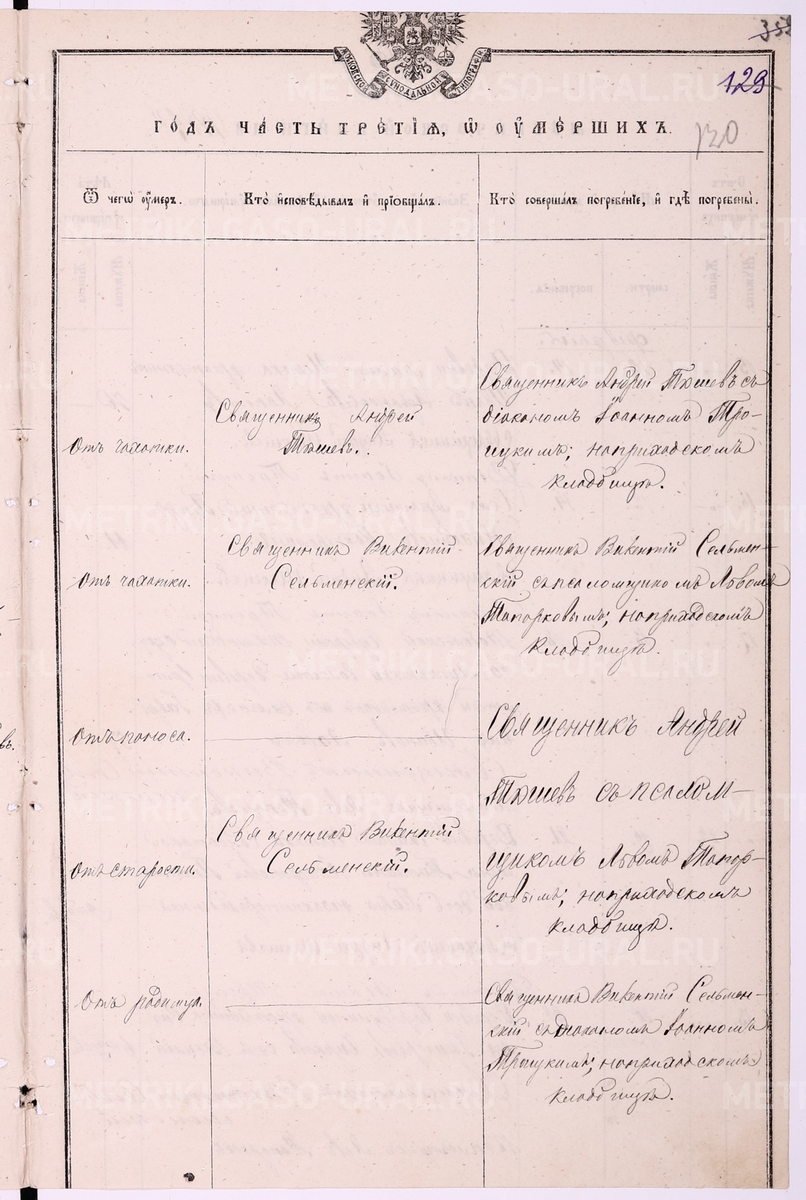 353
129
130
МОСКОВСКОЙ СѴНОДАЛЬНОЙ ТИПОГРАФІИ
ГО́ДЪ ЧА́СТЬ ТРЕ́ТІѦ, Ѡ҆ ОУ҆МЕ́РШИХЪ.
Ѿ чегѡ̀ оу҆́меръ.
Кто̀ и҆сповѣ́дывалъ и҆ прїобща́лъ.
Кто̀ соверша́лъ погребе́нїе, и҆ гдѣ̀ погребены̀.
Отъ чахотки.
Священникъ Андрей
Тюшевъ.
Священникъ Андрей Тюшевъ съ
діакономъ Іоанномъ Тро-
ицкимъ; на приходскомъ
кладбищѣ.
Отъ чахотки.
Священникъ Викентій
Сельменскій.
Священникъ Викентій Сельмен-
скій съ псаломщикомъ Львомъ
Топорковымъ; на приходскомъ
кладбищѣ.
Отъ поноса.
Священникъ Андрей
Тюшевъ съ псалом-
щикомъ Львомъ Топор-
ковымъ; на приходскомъ
кладбищѣ.
Отъ старости.
Священникъ Викентій
Сельменскій.
Отъ родимца.
Священникъ Викентій Сельмен-
скій съ діакономъ Іоанномъ
Троицкимъ; на приходскомъ
кладбищѣ.
METRIKI.GASO-URAL.RU